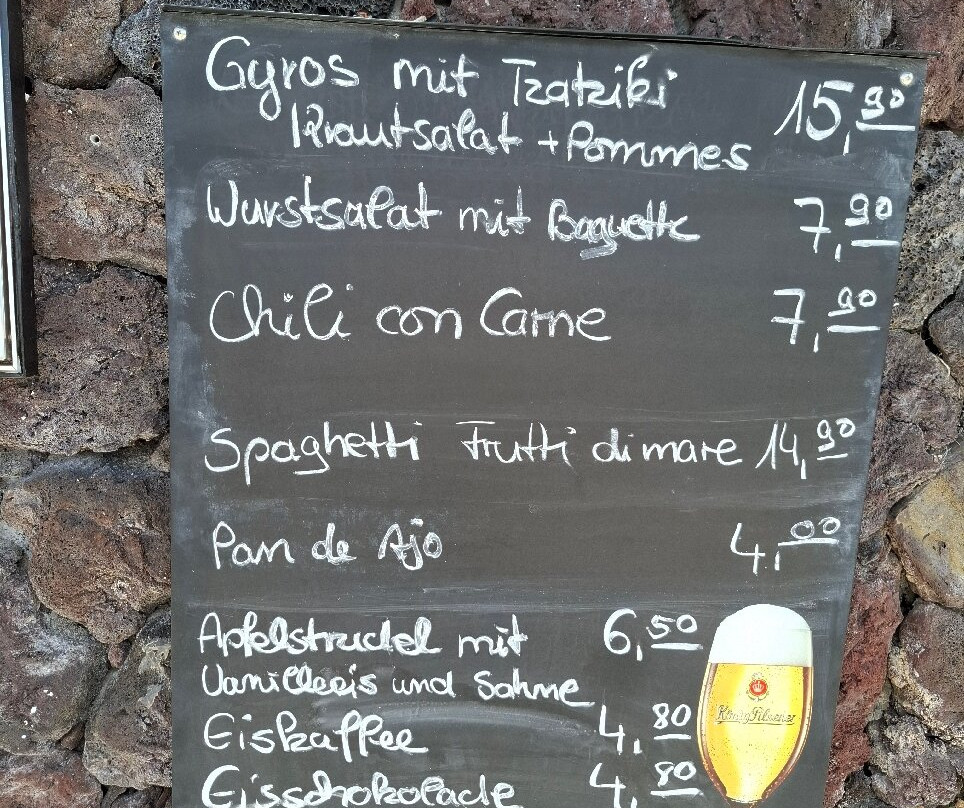 Gyros mit Tzatziki 15,90
Krautsalat + Pommes
Wurstsalat mit Baguette 7,90
Chili con Carne 7,90
Spaghetti Frutti di mare 14,90
Pan de Ajo 4,00
Apfelstrudel mit 6,50
Vanilleeis und Sahne
Eiskaffee 4,80
Eisschokolade 4,80
König Pilsener